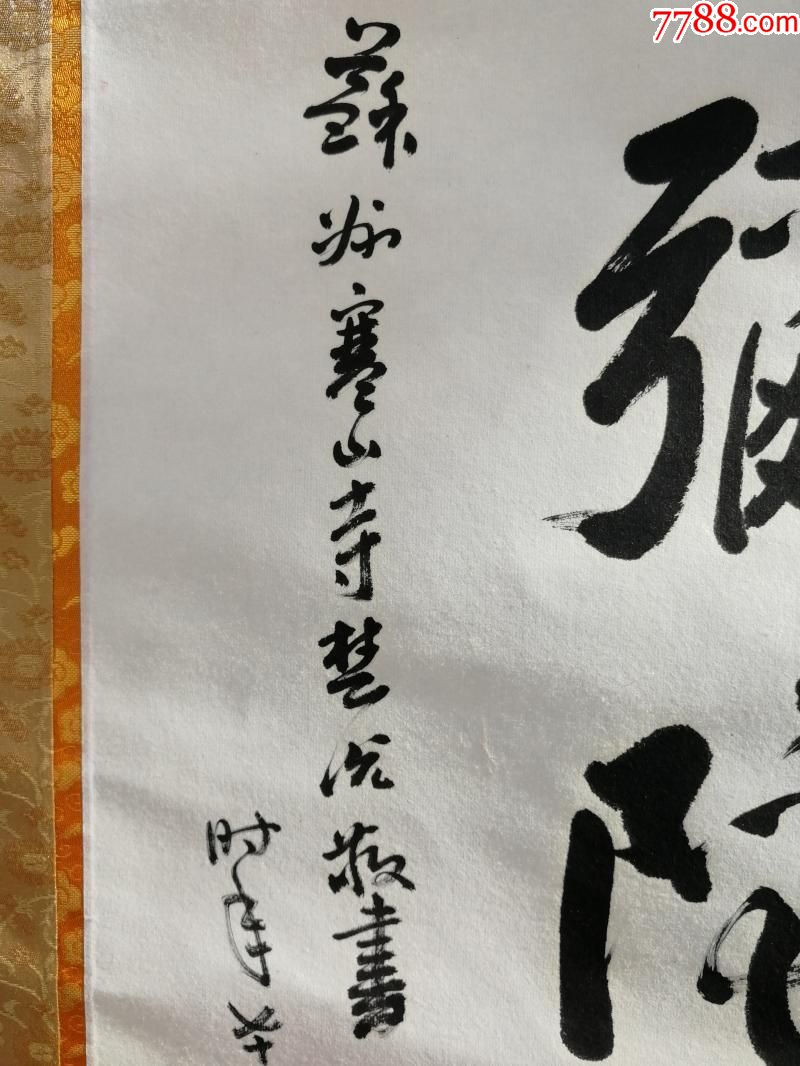 7788.com
彌陀
蘇州寒山寺楚光敬書
时年